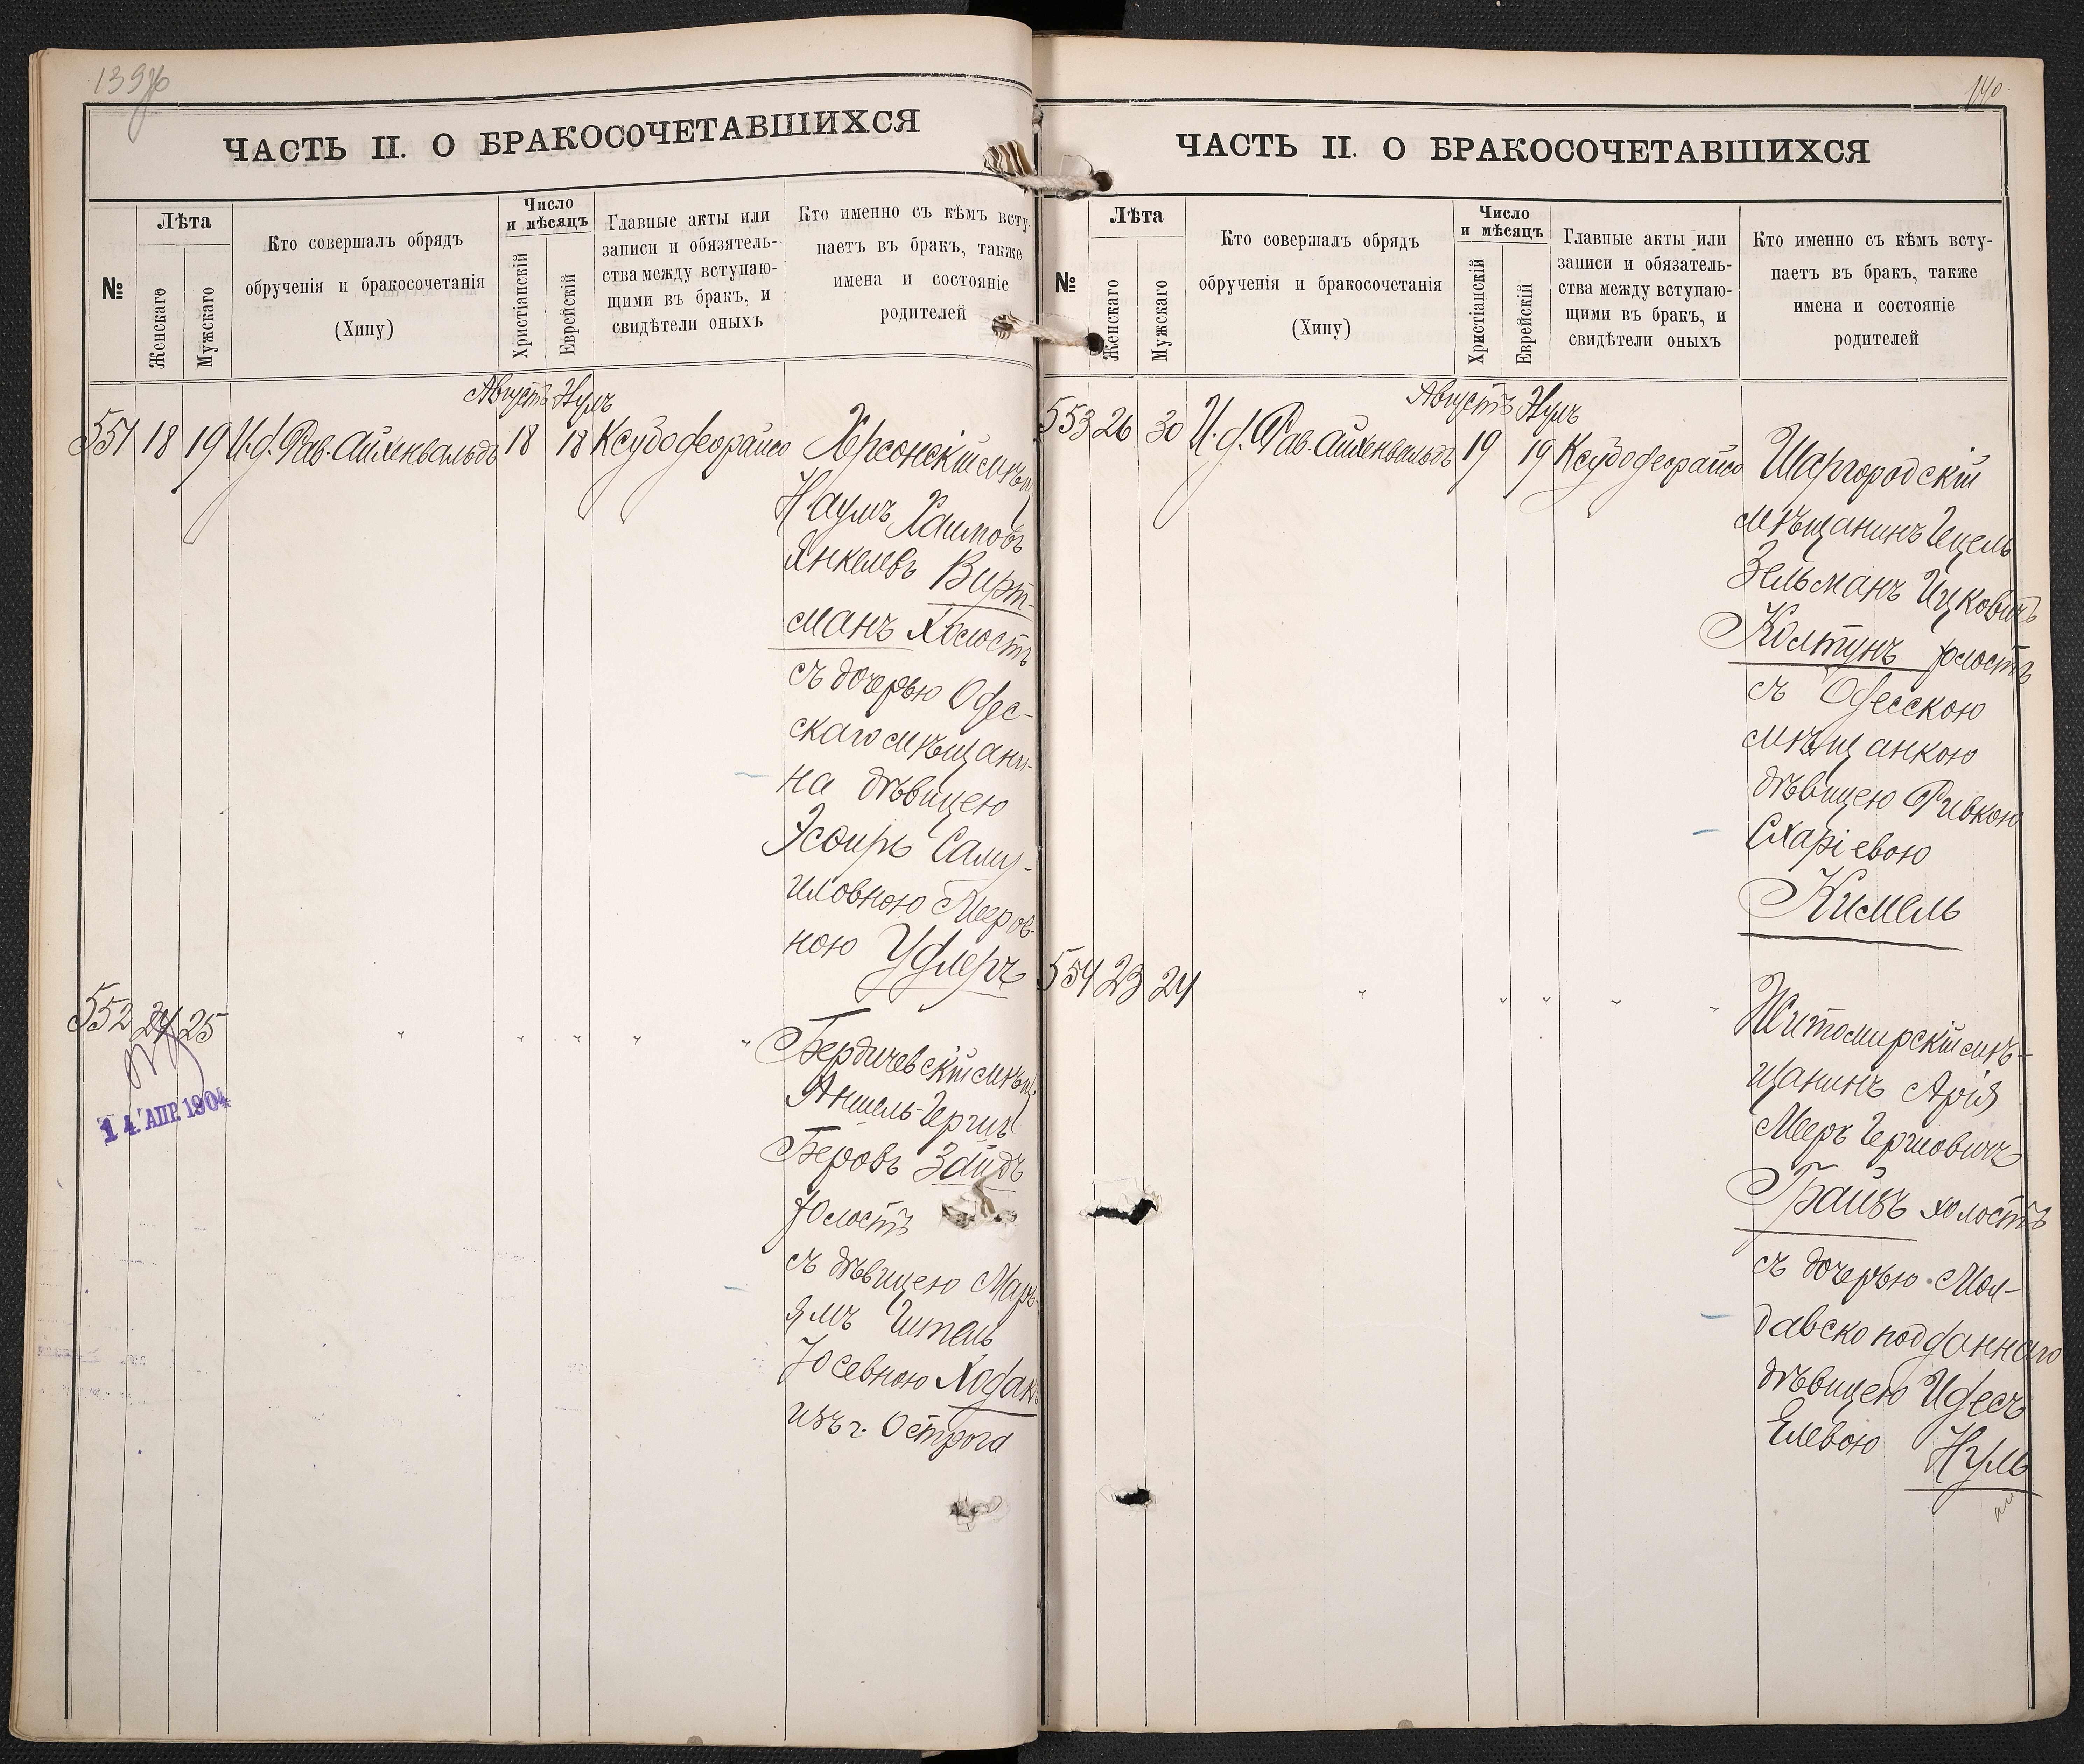 139
ЧАСТЬ II. О БРАКОСОЧЕТАВШИХСЯ
№
Лѣта
Женскаго
Мужскаго
Кто совершалъ обрядъ
обрученія и бракосочетанія
(Хипу)
Число
и мѣсяцъ
Христіанскій
Еврейскій
Главные акты или
записи и обязатель-
ства между вступаю-
щими въ бракъ, и
свидѣтели оныхъ
Кто именно съ кѣмъ всту-
паетъ въ бракъ, также
имена и состояніе
родителей
Августъ
551 18 19 И.д. Рав. Айхенвальдъ 18 18 Ксудофорайсо Херсонскій мѣщ.
Наумъ Хаимовъ
Янкелевъ Вирт-
манъ холостъ
съ дочерью Одес-
скаго мѣщани-
на дѣвицею
Эсѳирь Саму-
иловною Мееров-
ною Удлеръ
552 24 25 " " " " " Бердичевскій мѣщ.
Аншель-Гершъ
Беровъ Зайдъ
холостъ
съ дѣвицею Марь-
ямъ Гитель
Іосевною Ходакъ
изъ г. Острога
14 АПР. 1904
140
ЧАСТЬ II. О БРАКОСОЧЕТАВШИХСЯ
№
Лѣта
Женскаго
Мужскаго
Кто совершалъ обрядъ
обрученія и бракосочетанія
(Хипу)
Число
и мѣсяцъ
Христіанскій
Еврейскій
Главные акты или
записи и обязатель-
ства между вступаю-
щими въ бракъ, и
свидѣтели оныхъ
Кто именно съ кѣмъ всту-
паетъ въ бракъ, также
имена и состояніе
родителей
Августъ
553 26 30 И.д. Рав. Айхенвальдъ 19 19 Ксудофорайсо Шаргородскій
мѣщанинъ Гецель
Зельманъ Ицковичъ
Колтунъ холостъ
съ Одесскою
мѣщанкою
дѣвицею Ривкою
Схаріевою
Кимель
554 23 24 " " " " " Житомирскій мѣ-
щанинъ Арія
Мееръ Гершовичъ
Грайзъ холостъ
съ дочерью Мол-
давско подданнаго
дѣвицею Идесъ
Елевою Нуль